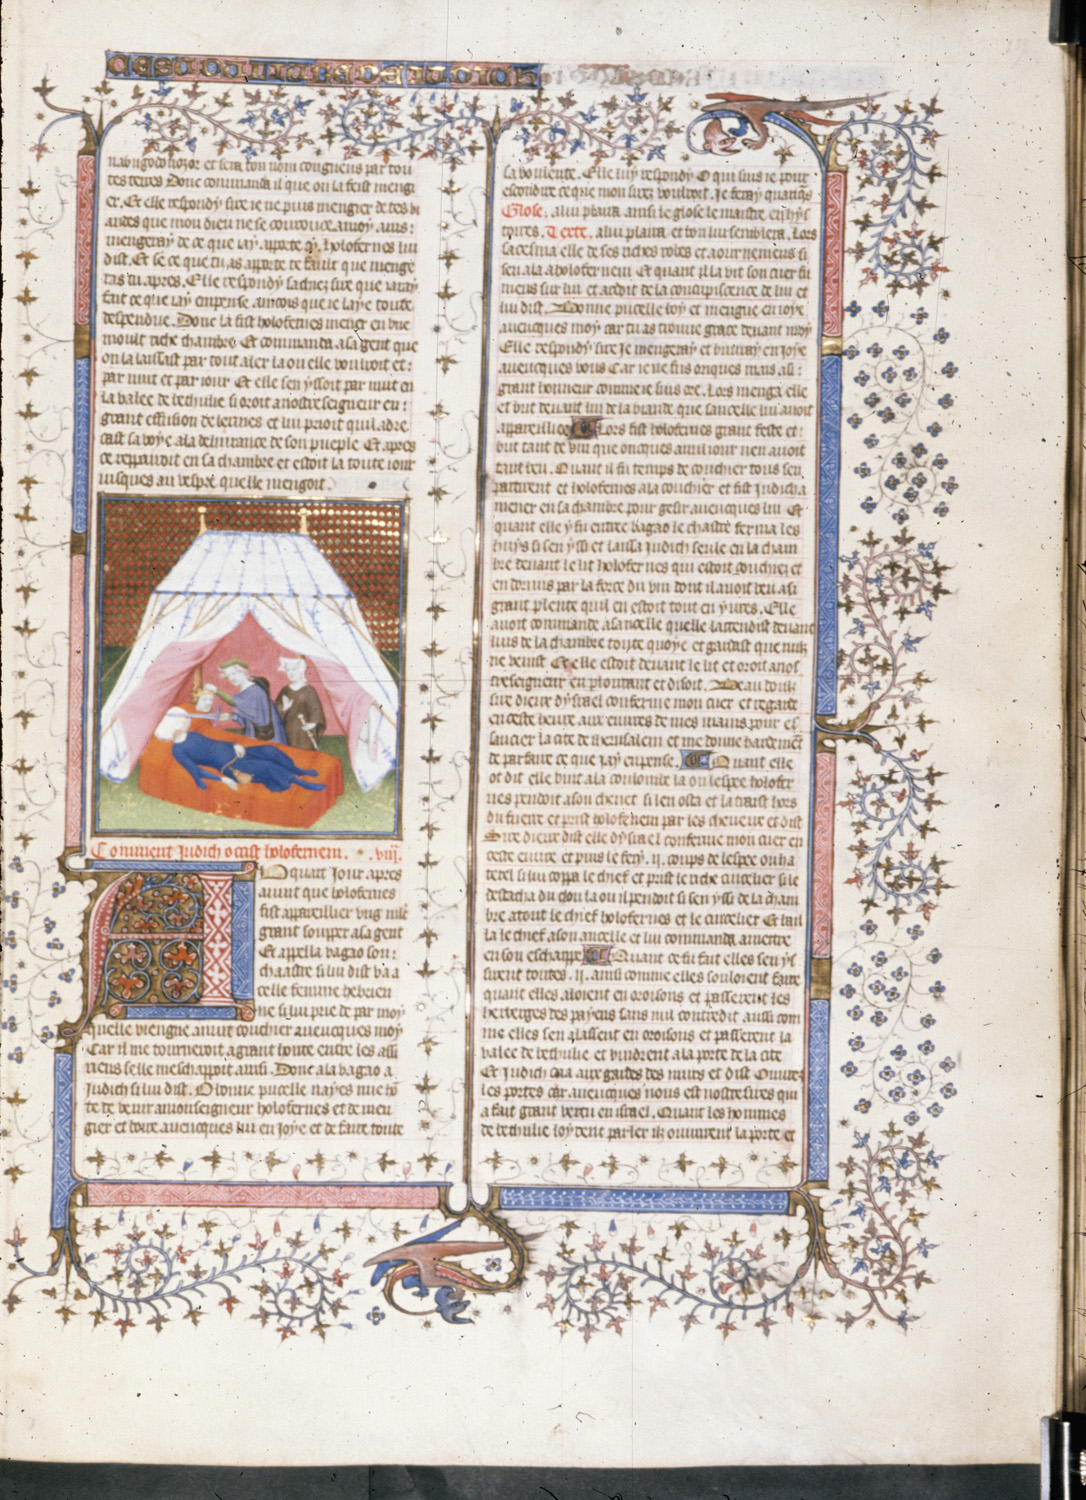 nabugodonozor et sera ton nom congneus par tou
tes terres Donc commanda il que on la feist mengi
er. Et elle respondy sire ie ne puis mengier de tes vi
andes que mon dieu ne se courouce a moy. mais
mengeray de ce que iay aporte
dist. Et se ce que tu as aporte te fault que menge
ras tu apres. Elle respondy sachiez sire que iaray
fait ce que iay enpense ancois que ie laye toute
despendue. Donc la fist holofernes mener en une
moult riche chambre Et commanda a sa gent que
on la laissast par tout aler la ou elle vouldroit et
par nuit et par iour Et elle sen yssoit par nuit en
la valee de bethulie si oroit a nostre seigneur en
grant effusion de lermes et lui prioit quil adre
cast sa voye a la delivrance de son pueple Et apres
ce repairoit en sa chambre et estoit la toute iour
iusques au vespre quelle mengoit.
Comment Judich occist holofernem. viij.
Quart iour apres
avint que holofernes
fist appareillier ung mlt
grant soupper a sa gent
Et appella bagao son
chastre si lui dist va a
celle femme hebrien
ne si lui prie de par moy
quelle viengne anuit couchier avecques moy
Car il me tourneroit a grant honte entre les assi
riens selle meschappoit ainsi. Donc ala bagao a
Judich si lui dist. O bonne pucelle nayes nue to
te de venir a monseigneur holofernes et de men
gier et boire avecques lui en Joye et de faire toute
sa voulente. Elle luy respondy O qui suis ie pour
escondire ce que mon sires vouldroit. Je feray quanqs
Glose. a lui plaira ainsi le glose le maistre en hys
toires. Texte. a lui plaira et bon lui semblera. Lors
sacesma elle de ses riches robes et aournemens si
sen ala a holofernem Et quant il la vit son cuer fu
meus sur lui et ardoit de la concupiscence de lui et
lui dist. Bonne pucelle boy et mengue en ioye
avecques moy car tu as trouve grace devant moy
Elle respondy sire Je mengeray et buvray en Joye
avecques vous Car ie ne fuis onques mais a si
grant honneur comme ie suis ore. Lors menga elle
et but devant lui de la viande que sancelle lui avoit
appareillie Lors fist holofernes grant feste et
but tant de vin que oncques a nul iour nen avoit
tant beu. Quant il fu temps de couchier tous sen
partirent et holofernes ala couchier et fist Judich a
mener en sa chambre pour gesir avecques lui Et
quant elle y fu entree bagao le chastre ferma les
huys si sen yssi et laissa Judich seule en la cham
bre devant le lit holofernes qui estoit couchiez et
endormis par la force du vin dont il avoit beu a si
grant plente quil en estoit tout en yvres. Elle
avoit commande a sancelle quelle lattendist devant
luis de la chambre toute quoye et gaitast que nulz
ne venist Et elle estoit devant le lit et oroit a nost
re seigneur en plourant et disoit. Beau doulz
sire dieux dysrael conferme mon cuer et regarde
en ceste heure aux euvres de mes mains pour es
saucier la cite de iherusalem et me donne hardemēt
de parfaire ce que iay enpense. Quant elle
ot dit elle vint a la coulombe la ou lespee holofer
nes pendoit a son chevet si len osta et la traist hors
du fuerre et prist holofernem par les cheveux et dist
Sire dieux dist elle dysrael conferme mon cuer en
ceste euvre et puis le fery. ij. coups de lespee ou ha
terel si lui coppa le chief et prist le riche cincelier si le
destacha du clou la ou il pendoit si sen yssi de la cham
bre atout le chief holofernes et le cincelier Et bail
la le chief a son ancelle et lui commanda a mettre
en son escharpe Quant ce fu fait elles sen ys
sirent toutes. ij. ainsi comme elles souloient faire
quant elles aloient en oroisons et passerent les
herberges des payens sans nul contredit aussi com
me elles sen alassent en oroisons et passerent la
valee de bethulie et vindrent a la porte de la cite
Et Judich cria aux gardes des murs et dist Ouvrez
les portes car avecques nous est nostre sires qui
a fait grant vertu en israel. Quant les hommes
de bethulie loyrent parler ilz ouvrirent la porte et